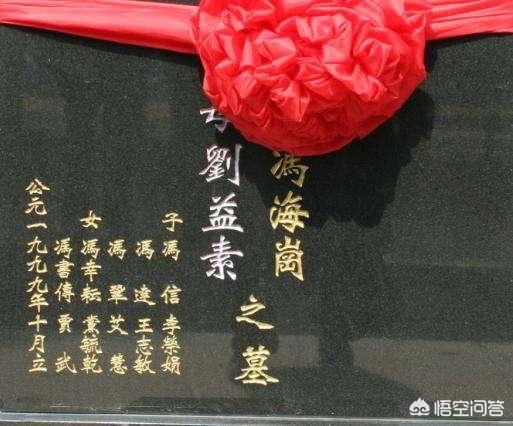 馮海崗
母劉益素
之墓
子 馮信 李榮娟
馮達 王志敏
馮鞏 艾慧
女 馮幸耘 黨毓乾
馮書傳 賈武
公元一九九九年十月立
悟空问答